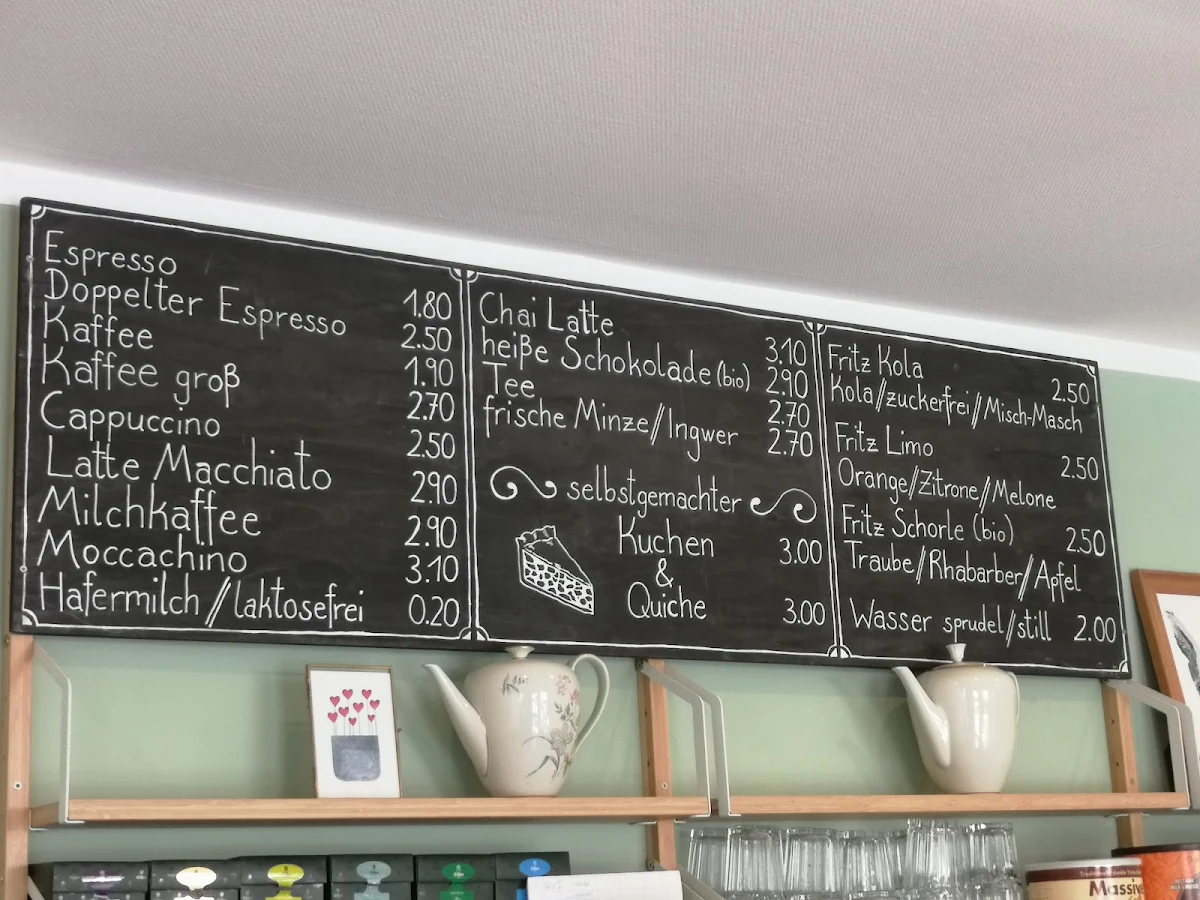 Espresso 1.80
Doppelter Espresso 2.50
Kaffee 1.90
Kaffee groß 2.70
Cappuccino 2.50
Latte Macchiato 2.90
Milchkaffee 2.90
Moccachino 3.10
Hafermilch // laktosefrei 0.20
Chai Latte 3.10
heiße Schokolade (bio) 2.90
Tee 2.70
frische Minze // Ingwer 2.70
selbstgemachter
Kuchen 3.00
&
Quiche 3.00
Fritz Kola 2.50
Kola//zuckerfrei//Misch-Masch
Fritz Limo 2.50
Orange/Zitrone//Melone
Fritz Schorle (bio) 2.50
Traube//Rhabarber//Apfel
Wasser sprudel//still 2.00
Massiv